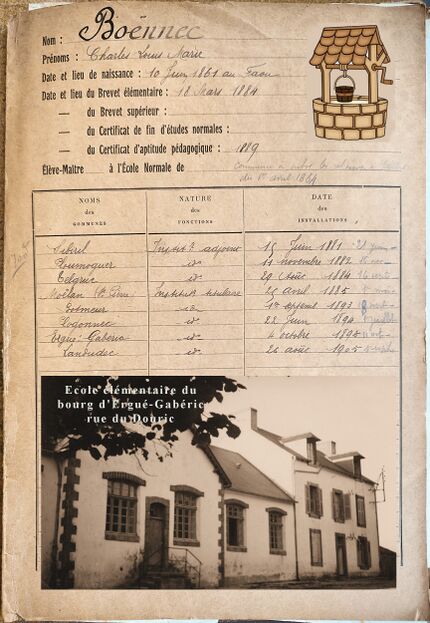 Nom : Boënnec
Prénoms : Charles Louis Marie
Date et lieu de naissance : 10 Juin 1861 au Faou
Date et lieu du Brevet élémentaire : 18 Mars 1884
— du Brevet supérieur :
— du Certificat de fin d'études normales :
— du Certificat d'aptitude pédagogique : 1889
Élève-Maître à l'École Normale de
du 1er avril 1884
NOMS des COMMUNES
NATURE des FONCTIONS
DATE des INSTALLATIONS
Sibiril Instit adjoint 15 Juin 1881
Ploumoguer id 11 novembre 1882
Telgruc id 29 Août 1884
Moëlan Institut titulaire 25 avril 1885
Gosmeur id 1er septemb 1893
Plogonnec id 22 Juin 1894
Ergué-Gabéric id 4 octobre 1898
Landudec id 26 août 1905
Ecole élémentaire du
bourg d'Ergué-Gabéric
rue du Douric